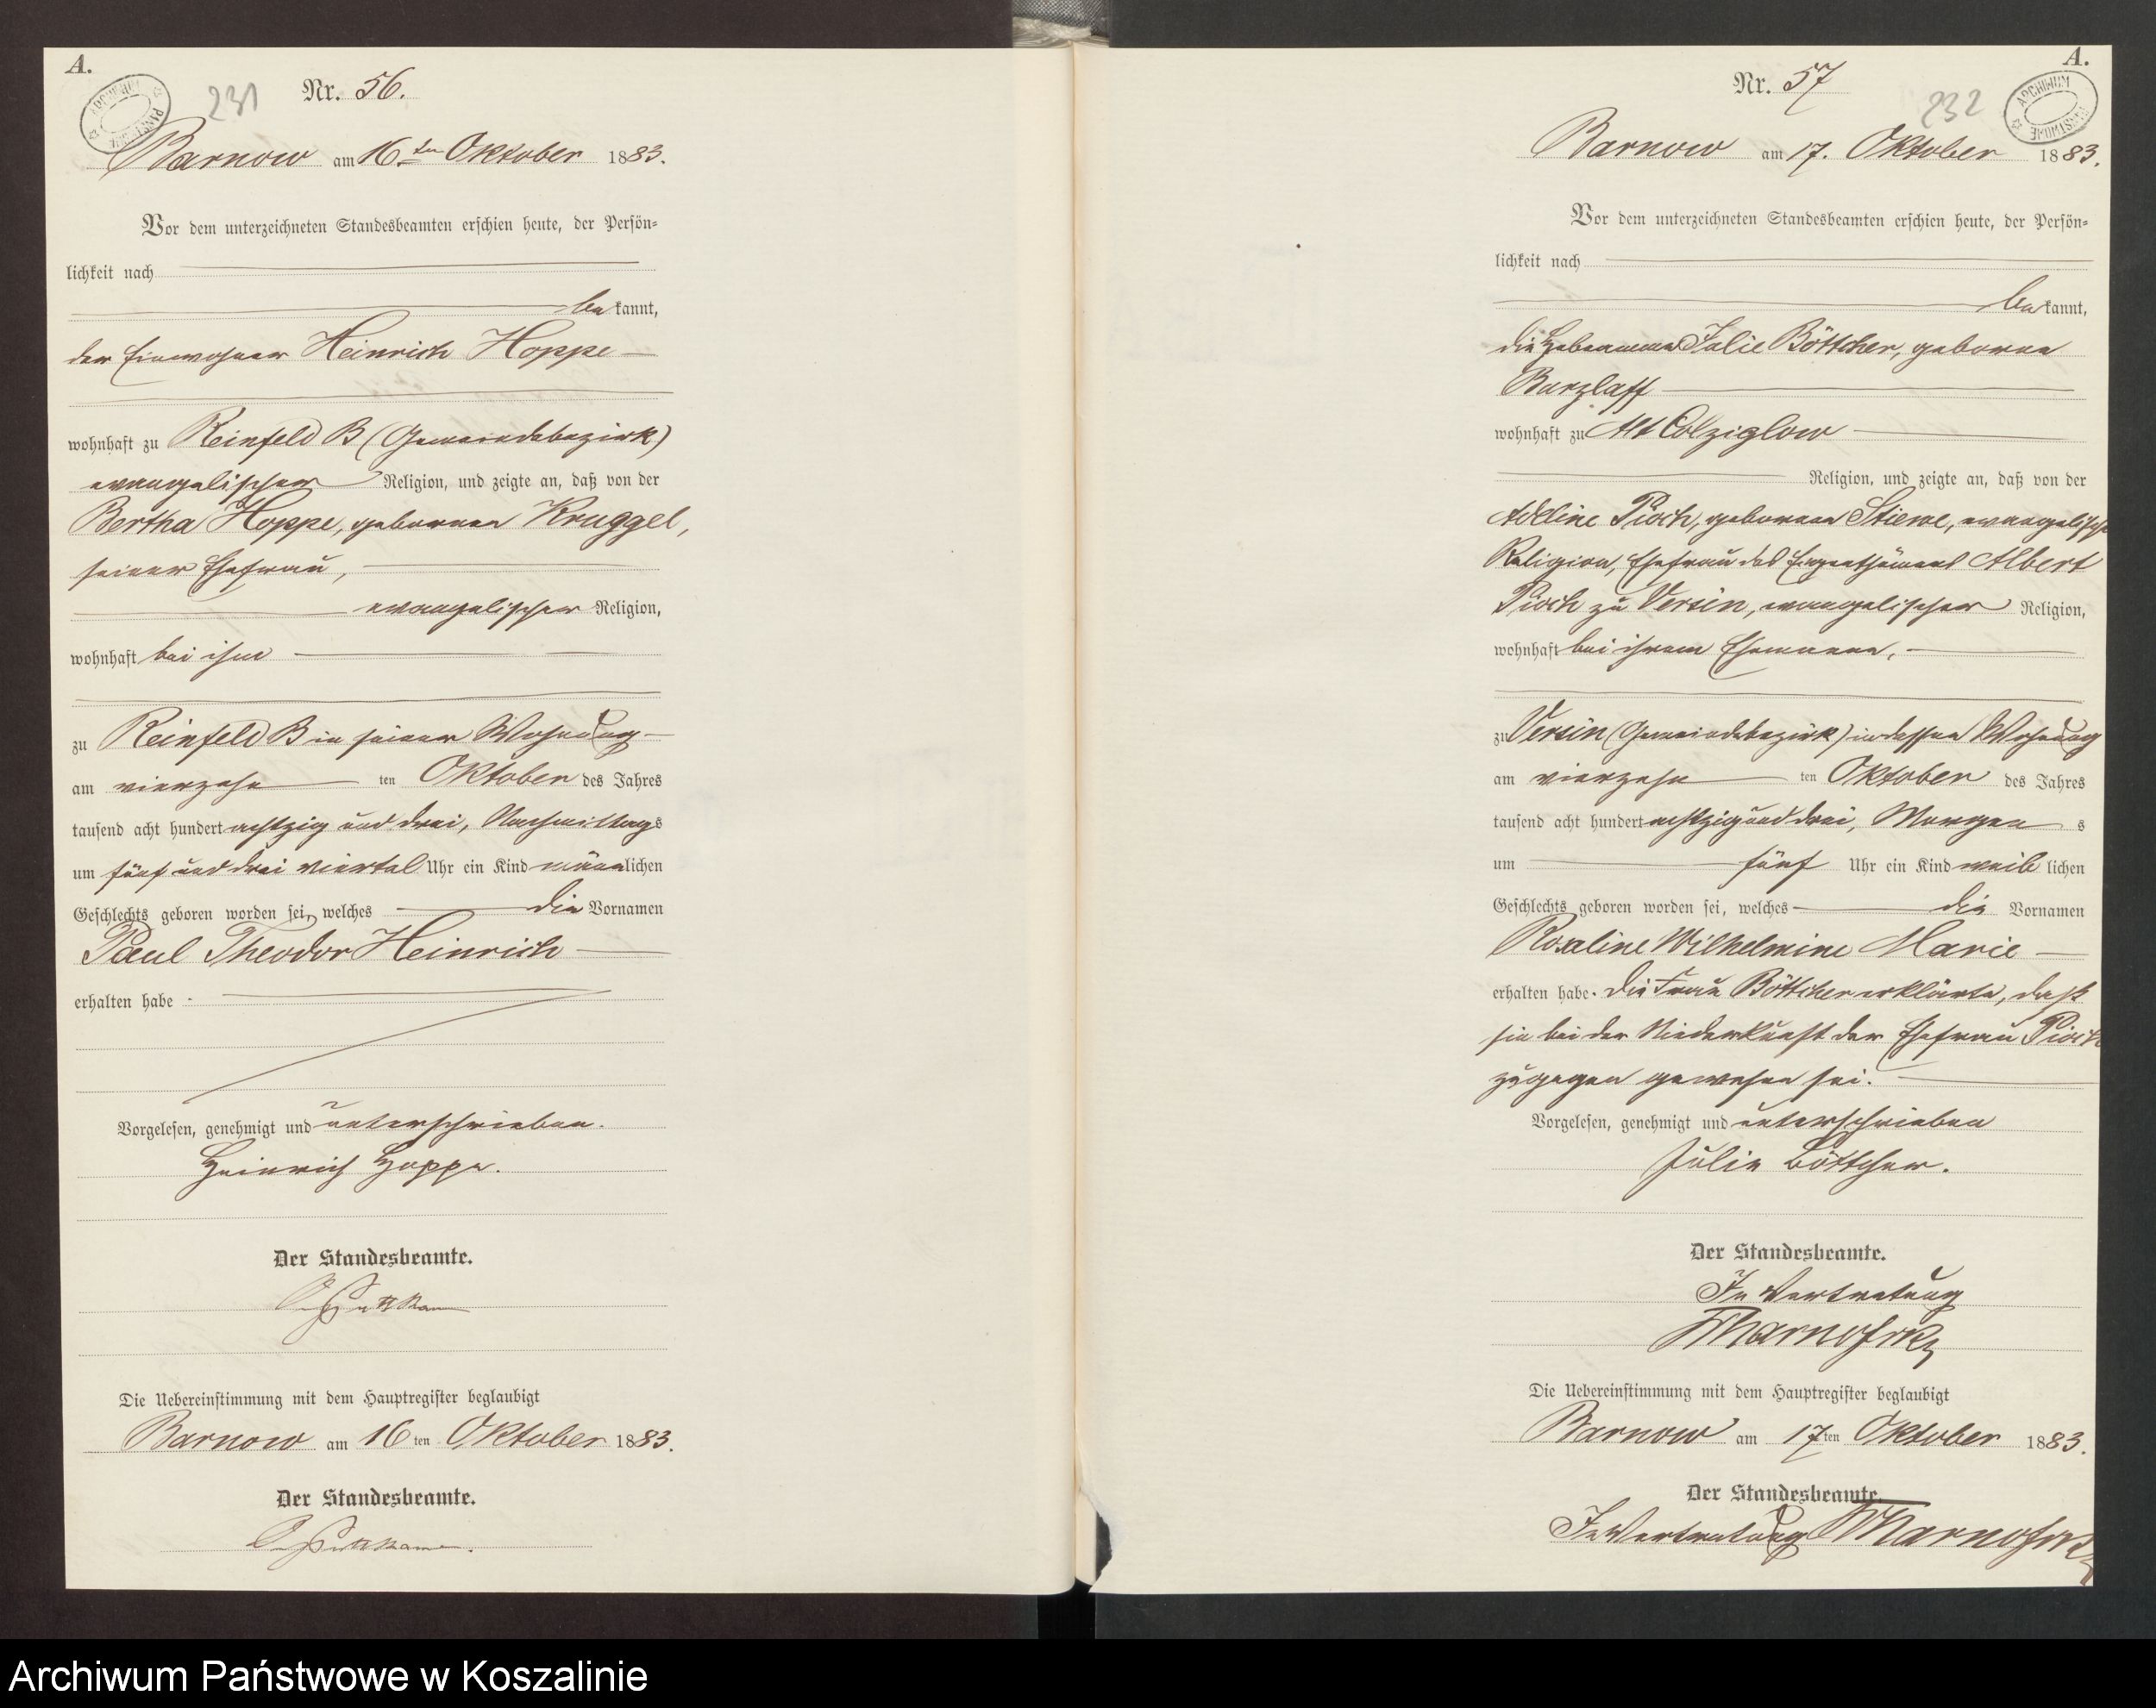 A.
231
Nr. 56.
Barnow am 16ten Oktober 1883.
Vor dem unterzeichneten Standesbeamten erschien heute, der Persön-
lichkeit nach
bekannt,
der Einwohner Heinrich Hoppe
wohnhaft zu Reinfeld B (Gemeindebezirk)
evangelischer Religion, und zeigte an, daß von der
Bertha Hoppe, geborenen Kruggel,
seiner Ehefrau,
evangelischer Religion,
wohnhaft bei ihm
zu Reinfeld B in seiner Wohnung
am vierzehn ten Oktober des Jahres
tausend acht hundert achtzig und drei, Nachmittags
um fünf und drei viertel Uhr ein Kind männlichen
Geschlechts geboren worden sei, welches die Vornamen
Paul Theodor Heinrich
erhalten habe
Vorgelesen, genehmigt und unterschrieben.
Heinrich Hoppe.
Der Standesbeamte.
Die Uebereinstimmung mit dem Hauptregister beglaubigt
Barnow am 16ten Oktober 1883.
Der Standesbeamte.
A.
ARCHIWUM PAŃSTWOWE
232
Nr. 57
Barnow am 17. Oktober 1883.
Vor dem unterzeichneten Standesbeamten erschien heute, der Persön-
lichkeit nach
bekannt,
die Hebamme Julie Böttcher, geborne
Barzlaff
wohnhaft zu Alt Colziglow
Religion, und zeigte an, daß von der
Adeline Pioch, geborenen Stiewe, evangelischer
Religion, Ehefrau des Eigenthümers Albert
Pioch zu Versin, evangelischer Religion,
wohnhaft bei ihrem Ehemanne,
zu Versin (Gemeindebezirk) in dessen Wohnung
am vierzehn ten Oktober des Jahres
tausend acht hundert achtzig und drei, Morgens
um fünf Uhr ein Kind weiblichen
Geschlechts geboren worden sei, welches die Vornamen
Rosaline Wilhelmine Marie
erhalten habe. Die Frau Böttcher erklärte, daß
sie bei der Niederkunft der Ehefrau Pioch
zugegen gewesen sei.
Vorgelesen, genehmigt und unterschrieben
Julie Böttcher.
Der Standesbeamte.
In Vertretung
Die Uebereinstimmung mit dem Hauptregister beglaubigt
Barnow am 17ten Oktober 1883.
Der Standesbeamte.
In Vertretung
Archiwum Państwowe w Koszalinie